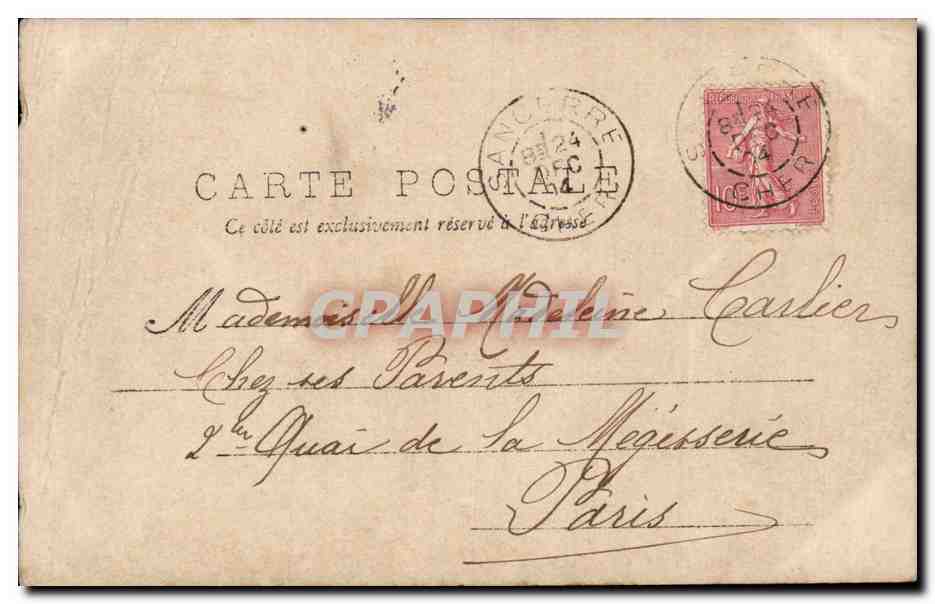 SANCERRE
8H 24
DEC
04
CHER
CHER
10
CARTE POSTALE
Ce côté est exclusivement réservé à l'adresse
GRAPHIL
Mademoiselle Madeleine Carlier
Chez ses Parents
2ter Quai de la Mégisserie
Paris